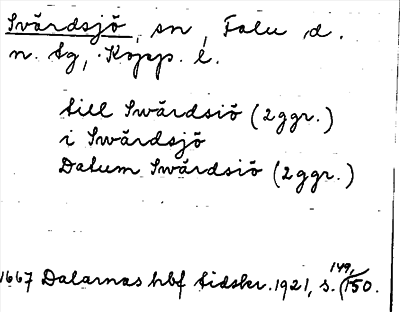 Svärdsjö, sn, Falu d.
n. sg, Kopp. l.
till Swärdsiö (2 ggr.)
i Swärdsjö
Datum Swärdsiö (2 ggr.)
1667 Dalarnas hbf tidskr. 1921, s. 149, 150.